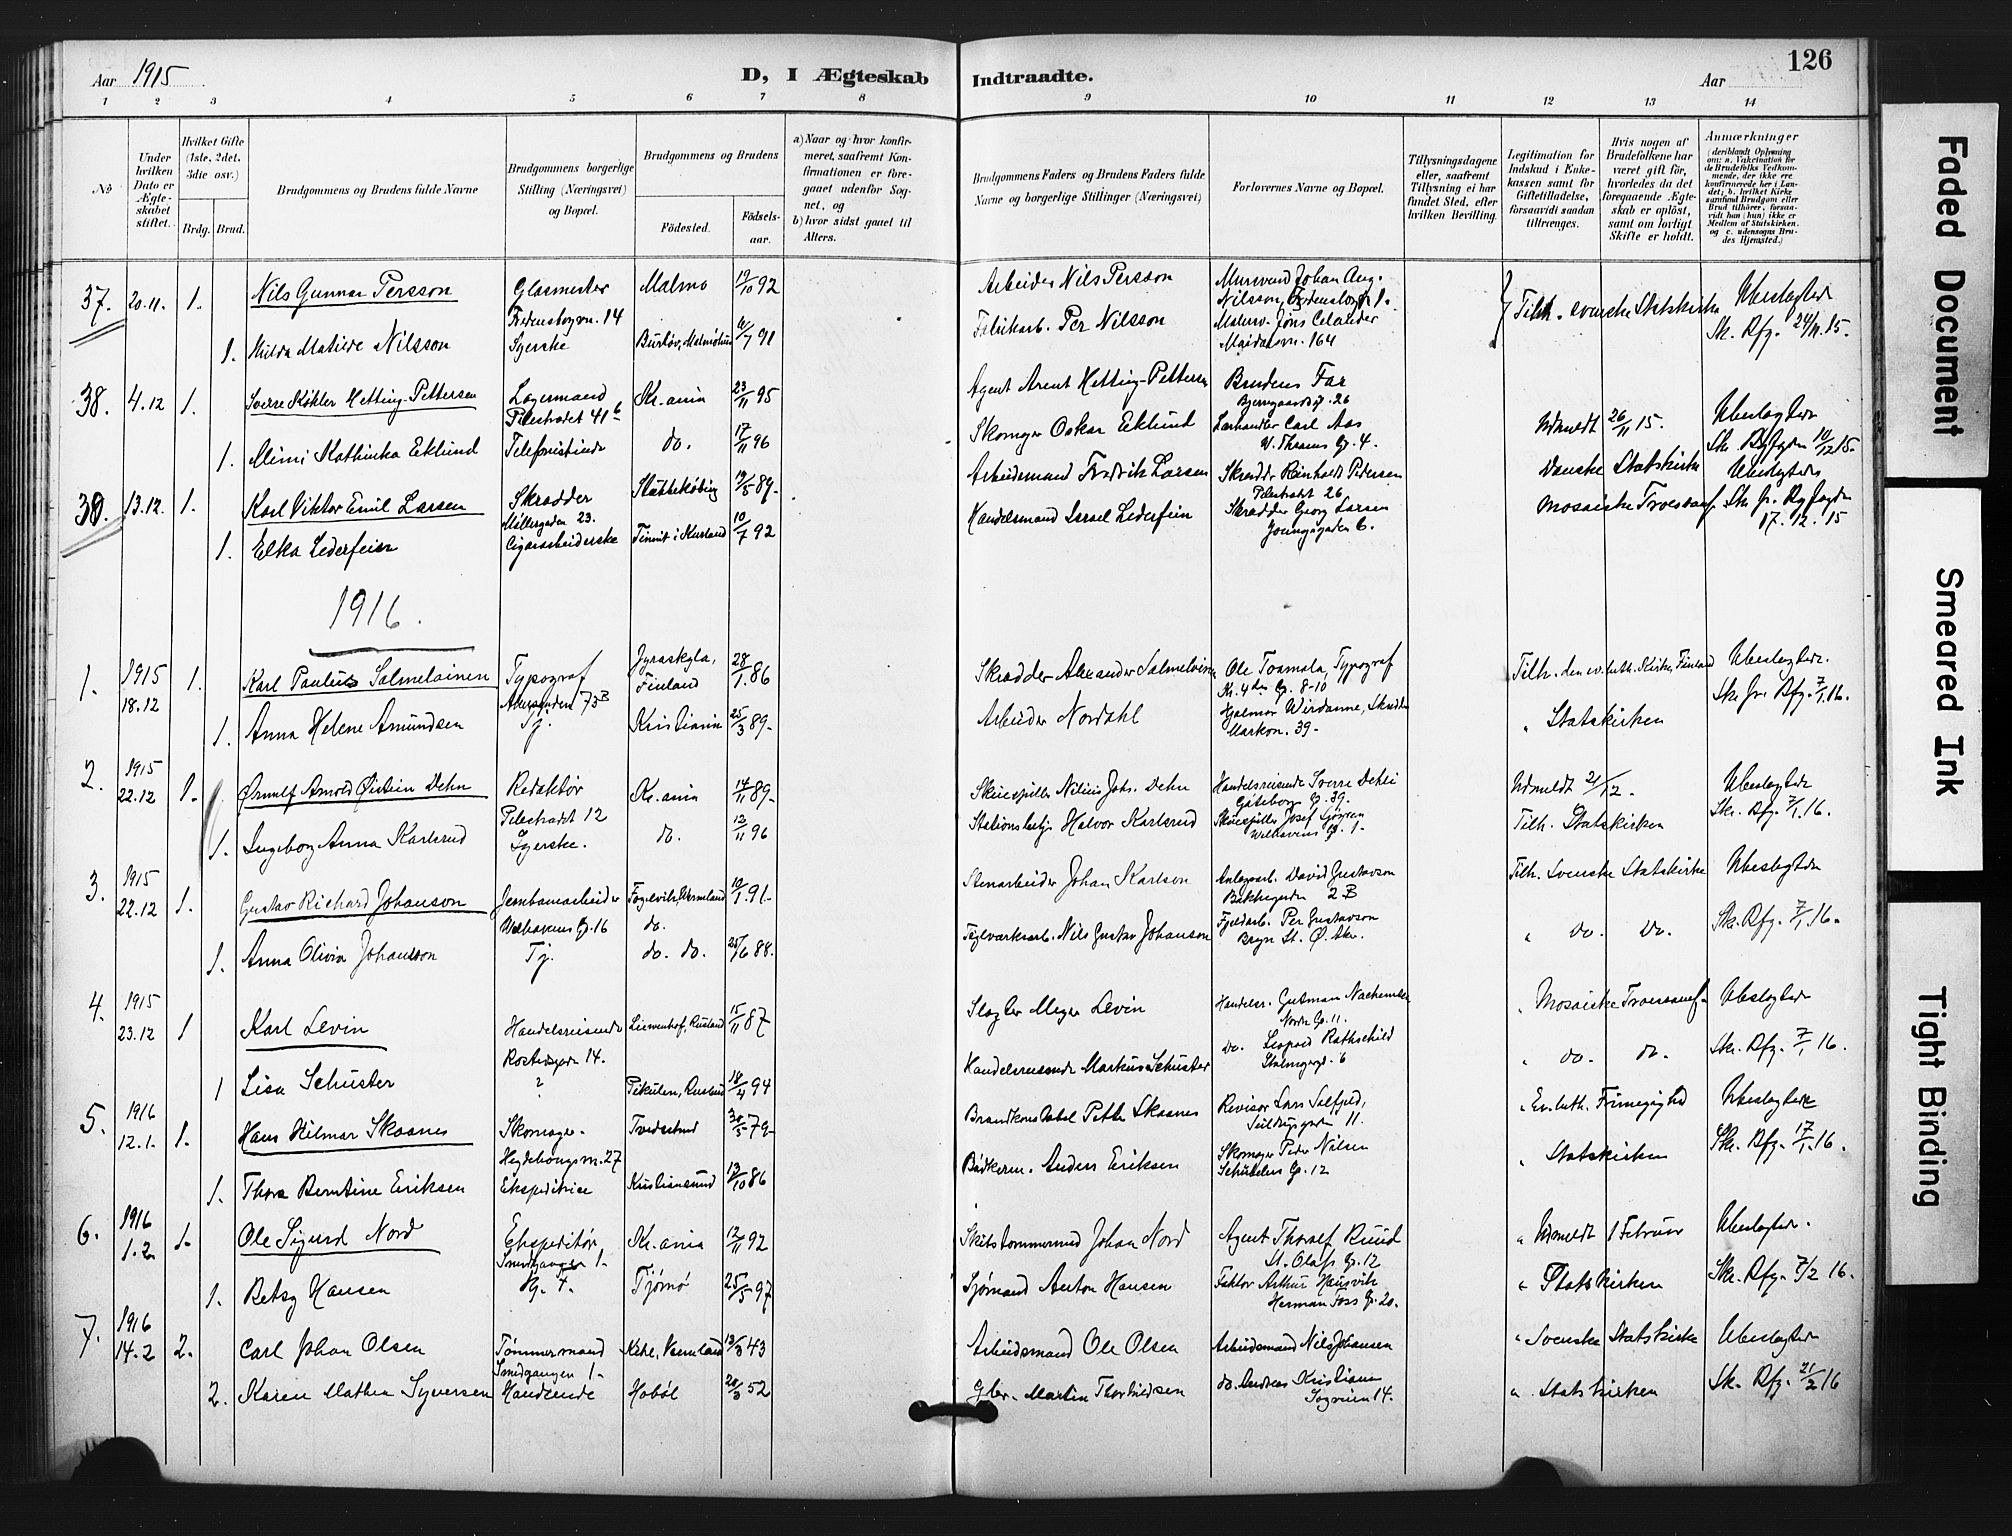 Aar 1915
D, I Ægteskab Indtraadte.
Aar
126
1 2 3 4 5 6 7 8 9 10 11 12 13 14
No
Under hvilken Dato er Ægteskabet stiftet.
Hvilket Gifte (1ste, 2det, 3die osv.)
Brdg. Brud.
Brudgommens og Brudens fulde Navne
Brudgommens borgerlige Stilling (Næringsvei) og Bopæl.
Brudgommens og Brudens
Fødested.
Fødselsaar.
a) Naar og hvor konfirmeret, saafremt Konfirmationen er foregaaet udenfor Sognet, og
b) hvor sidst gaaet til Alters.
Brudgommens Faders og Brudens Faders fulde Navne og borgerlige Stillinger (Næringsvei)
Forlovernes Navne og Bopæl.
Tillysningsdagene eller, saafremt Tillysning ei har fundet Sted, efter hvilken Bevilling.
Legitimation for Indskud i Enkekassen samt for Giftetilladelse, forsaavidt saadan tiltrænges.
Hvis nogen af Brudefolkene har været gift før, hvorledes da det foregaaende Ægteskab er opløst, samt om lovligt Skifte er holdt.
Anmærkninger
(deriblandt Oplysning om: a. Vakcination for de Brudefolks Vedkommende, der ikke ere konfirmerede her i Landet; b. hvilket Kirkesamfund Brudgom eller Brud tilhører, forsaavidt han (hun) ikke er Medlem af Statskirken, og c. udensogns Brudes Hjemsted.)
37. 20.11. 1. Nils Gunnar Persson Glasmester Malmø 19/10 92 Arbeider Nils Persson Murersvend Johan Aug. Nilsson, Tilh. svenske Statskirke Ubeslægtede
Fredensborgvn. 14 Sk. Rfg. 24/11.15.
1. Hilda Matilde Nilsson Syerske Burløv, Malmøhus 91 Fabrikarb. Per Nilsson Malersv. Jøns Celander
164
38. 4.12 1. Sverre Køhler Hetting-Pettersen Lagermand Kr.ania 23/11 95 Agent Arent Hetting-Pettersen Brudens Far Udmeldt 26/11 15. Ubeslægtede
Pilestrædet 41b 26
1. Mimi Kathinka Eklund Telefonistinde do. 17/11 96 Skomager Oskar Eklund Carl Aas
M. Thranes G. 4.
39. 13.12. 1. Karl Viktor Emil Larsen Skrædder Stubbekøbing 19/5 89. Arbeidsmand Fredrik Larsen Skrædder Reinholdt Pedersen Danske Statskirke Ubeslægtede
Møllergaden 23. Pilestrædet 26
1. Elka Lederfein Cigararbeiderske 10/7 92 Handelsmand Israel Lederfein Skrædder Georg Larsen Mosaiske Trossamf.
Youngsgaden 6. 17.12.15
1916.
1. 1915 18.12 1. Karl Paulus Salmelainen Typograf Jyraskyla, Finland 28/1.86 Skrædder Alexander Salmelainen Ole Toamala, Typograf Tilh. den ev. luth. Kirke, Finland Ubeslægtede.
Akersveien 73B 8-10 Sk. Rfg. 7/1.16.
1. Anna Helene Amundsen Tj. Kristiania 25/3 89. Arbeider Nordahl Hjalmar Wirdanne, Skrædder " Statskirken
Markvn. 39.
2. 1915 22.12 1. Ørnulf Arnold Øistein Dehn Redaktør Kr.ania 14/11 89. Skuespiller Nilius Johs. Dehn Handelsreisende Sverre Dehli Udmeldt 21/12. Ubeslægtede
Pilestrædet 12 Gøteborg G. 39. Sk. Rfg. 7/1.16.
1. Ingeborg Anna Karlsrud Syerske. do. 12/11 96 Stationsbetj. Halvor Karlsrud Skuespiller Josef Tilh. Statskirken
Welhavens G. 1.
3. 1915 22.12 1. Gustav Richard Johanson Jernbanearbeider Vermland 91. Stenarbeider Johan Karlson Anlægsarb. David Gustavson Tilh. Svenske Statskirke Ubeslægtede
Welhavens G. 16 do. 2B
1. Anna Olivia Johansson Tj. do. do. 25/6 88. Teglværksarb. Nils Gustav Johanson Fjeldarb. Per Gustavson " do. do. Sk. Rfg. 7/1.16.
Bryn St. Ø. Aker.
4. 1915 23.12 1 Karl Levin Handelsreisende Liewenhof, Rusland 15/11 87 Slagter Meyer Levin Handelsr. Gutman Nachemsen " Mosaiske Trossamf. Ubeslægtede
Rostedsgaden 14. Nordre G. 11.
1 Lisa Schuster ? Pikulen, Rusland 18/4 94 Handelsreisende Markus Schuster do. Leopold Rothschild " do. do. Sk. Rfg. 7/1 16.
6
5. 1916 12.1. 1. Hans Hilmar Skaanes Skomager. Tvedestrand 30/5 79. Brandkonstabel Petter Skaanes Revisor Lars " Ev. luth. Frimenighed Ubeslægtede
27 11.
1. Thora Berntine Eriksen Ekspeditrice Kristiansund 13/10 86 Bødkerm. Anders Eriksen Skomager Peder Nilsen " Statskirken Sk. Rfg. 17/1.16.
Schübelers G. 12
6. 1916 1.2. 1. Ole Sigurd Nord Ekspeditør, Kr.ania 12/11 92 Skibstømmermand Johan Nord Agent Thoralf Ruud " Udmeldt 1 Februar Ubeslægtede.
Smedgangen 1. St. Olafs G. 12
1. Betsy Hansen Tjømø 25/5 97 Sjømand Anton Hansen Faktor Arthur " Statskirken Sk. Rfg. 7/2 16.
Herman Foss G. 20.
7. 1916 14.2 2. Carl Johan Olsen Tømmermand Vermland 43 Arbeidsmand Ole Olsen Arbeidsmand Nils Johansen " Svenske Statskirke Ubeslægtede
Smedgangen 1.
2. Karen Mathea Syversen Haandsende Hobøl 20/3 52 Gbr. Martin Thorkildsen do. Andreas Kristiansen " Statskirken Sk. Rfg. 21/2 16
Sogveien 14.
Faded Document
Smeared Ink
Tight Binding